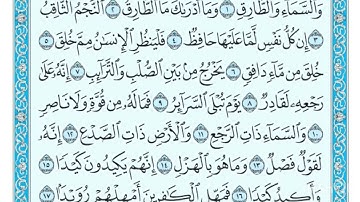 وَالسَّمَآءِ وَالطَّارِقِ ١ وَمَآ أَدْرَىٰكَ مَا الطَّارِقُ ٢ النَّجْمُ الثَّاقِبُ
٣ إِن كُلُّ نَفْسٍ لَّمَّا عَلَيْهَا حَافِظٌ ٤ فَلْيَنظُرِ الْإِنسَٰنُ مِمَّ خُلِقَ ٥
خُلِقَ مِن مَّآءٍ دَافِقٍ ٦ يَخْرُجُ مِنۢ بَيْنِ الصُّلْبِ وَالتَّرَآئِبِ ٧ إِنَّهُۥ عَلَىٰ
رَجْعِهِۦ لَقَادِرٌ ٨ يَوْمَ تُبْلَى السَّرَآئِرُ ٩ فَمَا لَهُۥ مِن قُوَّةٍ وَلَا نَاصِرٍ
١٠ وَالسَّمَآءِ ذَاتِ الرَّجْعِ ١١ وَالْأَرْضِ ذَاتِ الصَّدْعِ ١٢ إِنَّهُۥ
لَقَوْلٌ فَصْلٌ ١٣ وَمَا هُوَ بِالْهَزْلِ ١٤ إِنَّهُمْ يَكِيدُونَ كَيْدًا ١٥
وَأَكِيدُ كَيْدًا ١٦ فَمَهِّلِ الْكَٰفِرِينَ أَمْهِلْهُمْ رُوَيْدًۢا ١٧